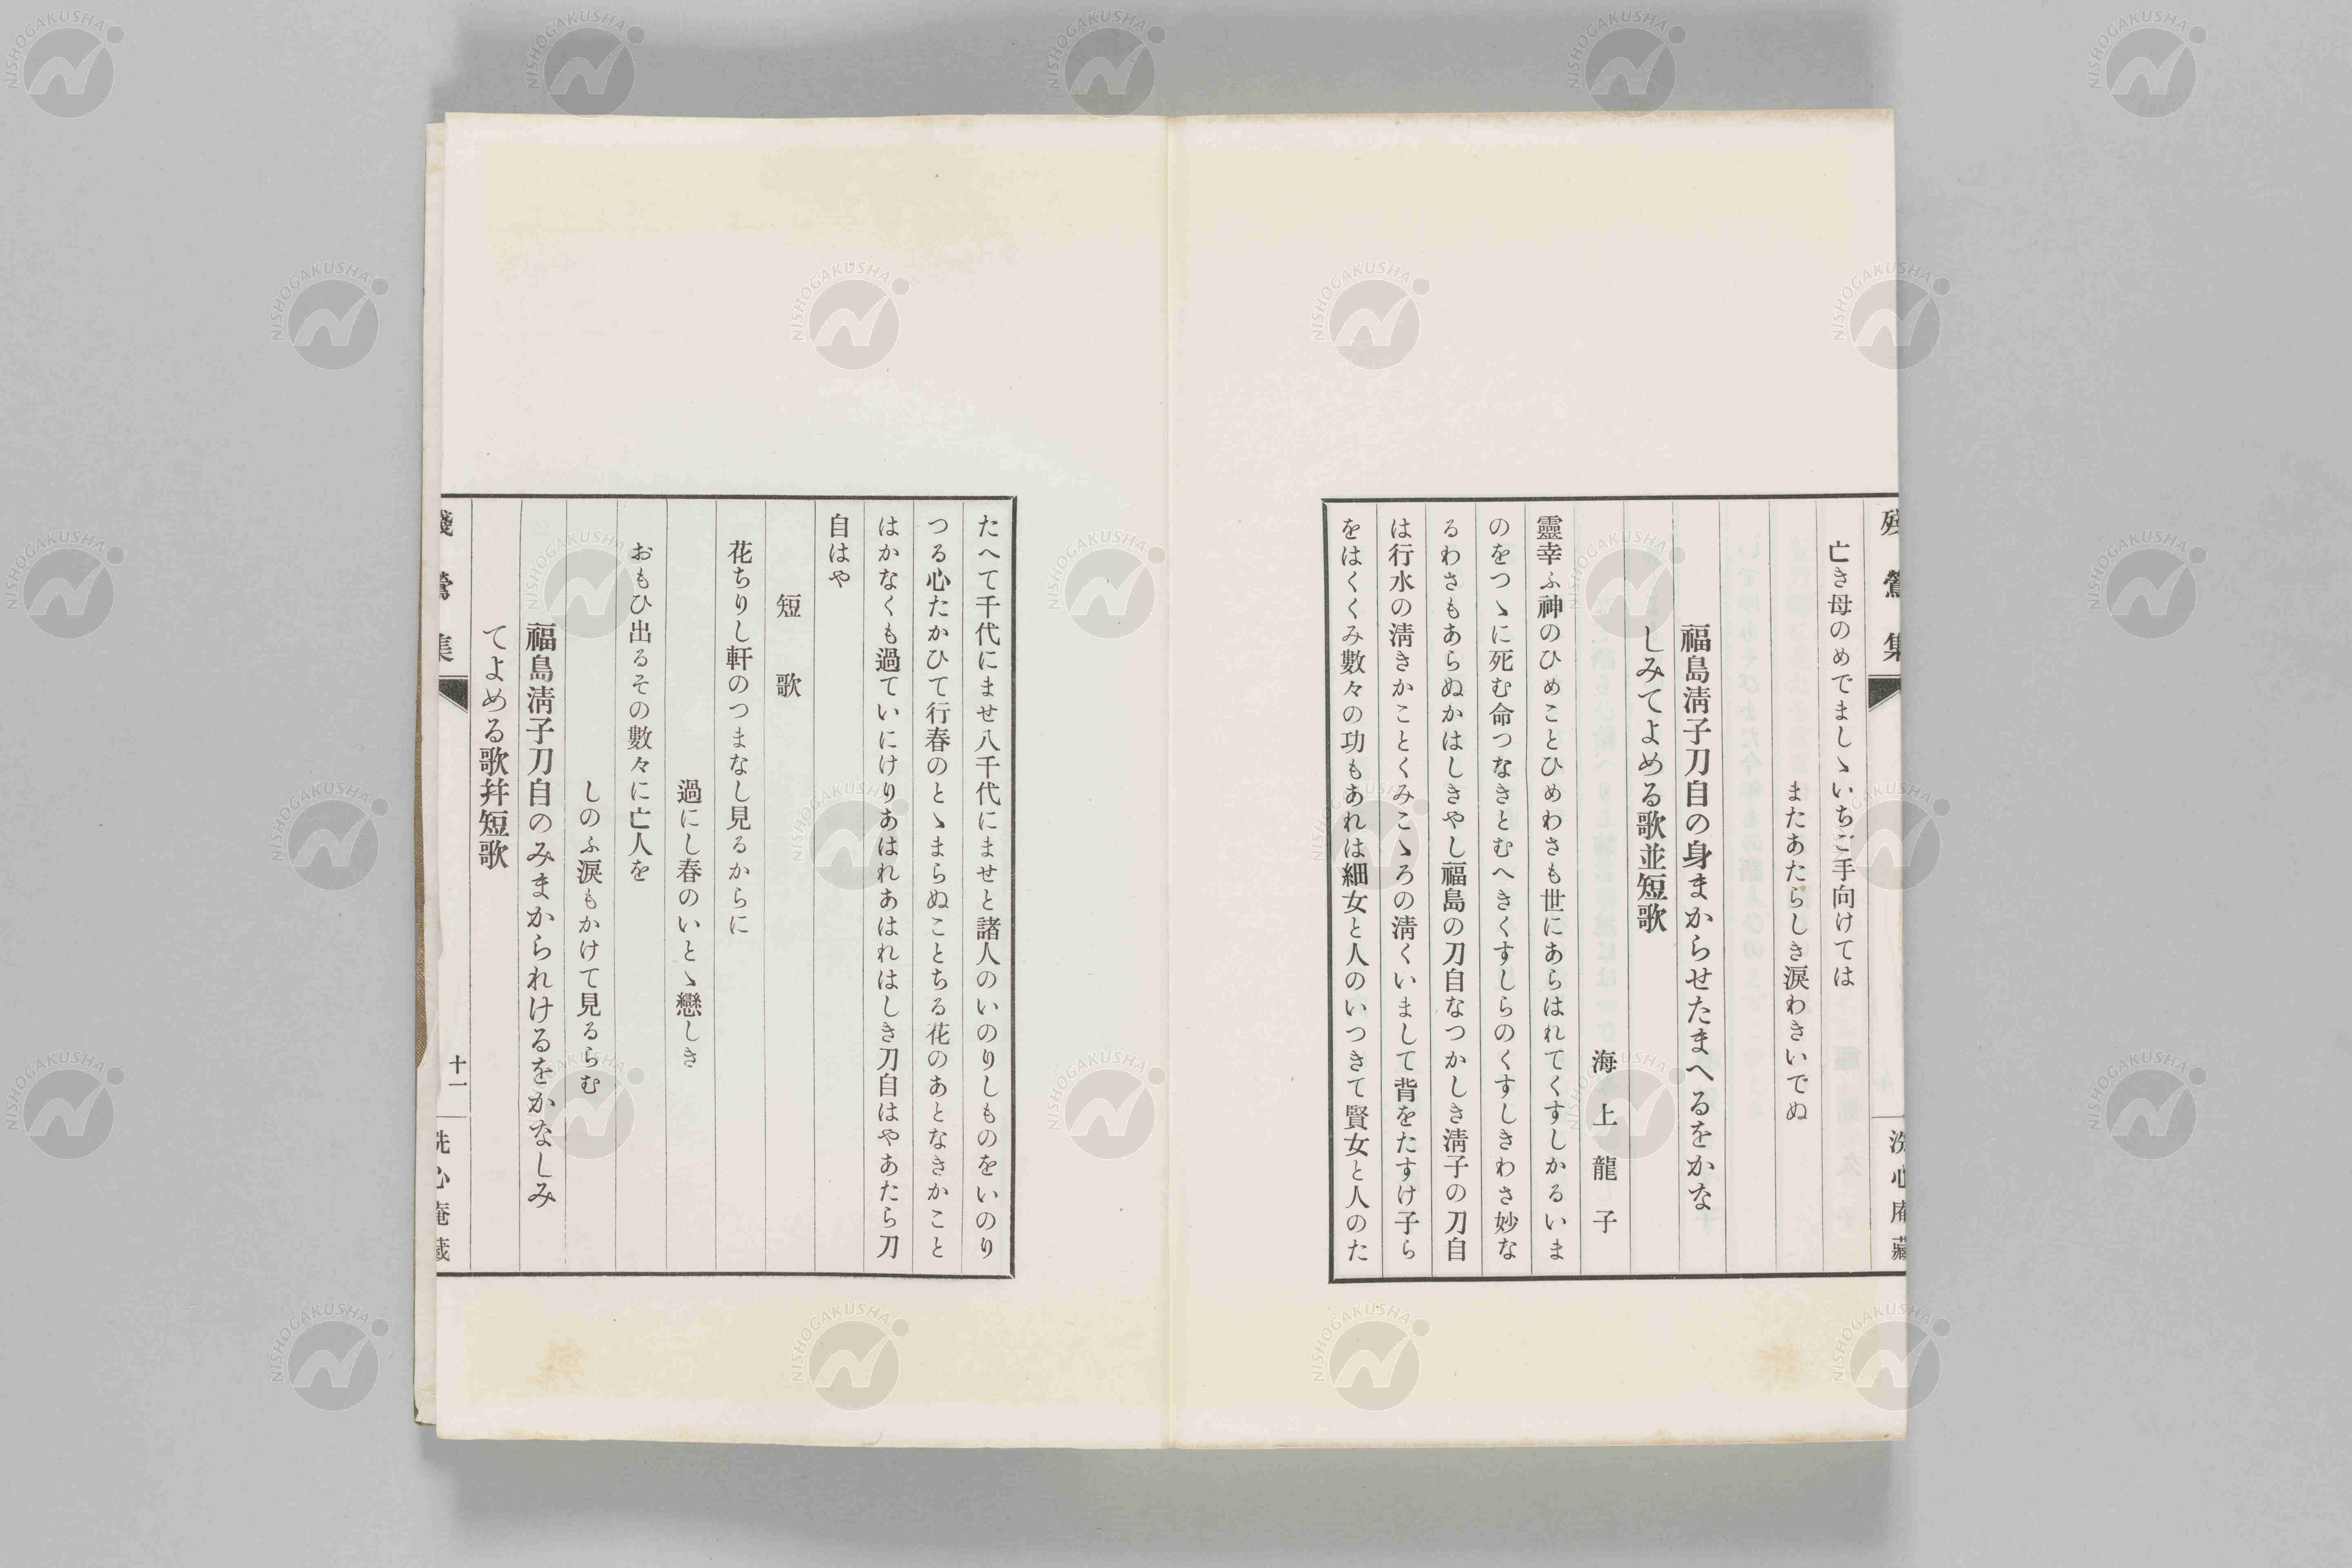 殘鶯集
洗心庵藏
亡き母のめでましゝいちご手向けては
またあたらしき涙わきいでぬ
福島淸子刀自の身まからせたまへるをかな
しみてよめる歌並短歌
海上龍子
靈幸ふ神のひめことひめわさも世にあらはれてくすしかるいま
のをつゝに死む命つなきとむへきくすしらのくすしきわさ妙な
るわさもあらぬかはしきやし福島の刀自なつかしき淸子の刀自
は行水の淸きかことくみこゝろの淸くいまして背をたすけ子ら
をはくくみ數々の功もあれは細女と人のいつきて賢女と人のた
たへて千代にませ八千代にませと諸人のいのりしものをいのり
つる心たかひて行春のとゝまらぬことちる花のあとなきかこと
はかなくも過ていにけりあはれあはれはしき刀自はやあたら刀
自はや
短歌
花ちりし軒のつまなし見るからに
過にし春のいとゝ戀しき
おもひ出るその數々に亡人を
しのふ涙もかけて見るらむ
福島淸子刀自のみまかられけるをかなしみ
てよめる歌幷短歌
殘鶯集
十一
洗心庵藏
NISHOGAKUSHA